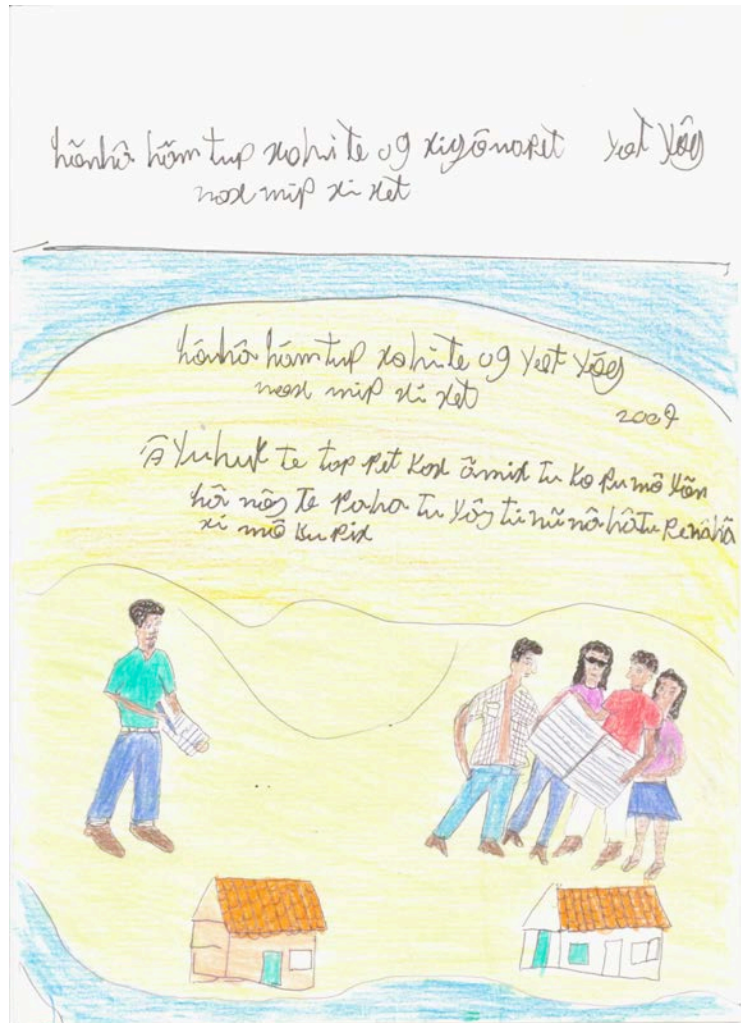 hãnhã hãm tup xohi te ug xigãnoPet yat Yõg
nox miP xi xet
hãnhã hãm tuP xohi te ug Yat Yõg
nox miP xi xet
2009
Ã Yuhuk te top Pet Kox ãmix Tu Ko Pu mõ Yõn
hã nõg Te Paha Tu Yõg ti nũ nã hã Tu Penã hã
xi mõ Ku Pix